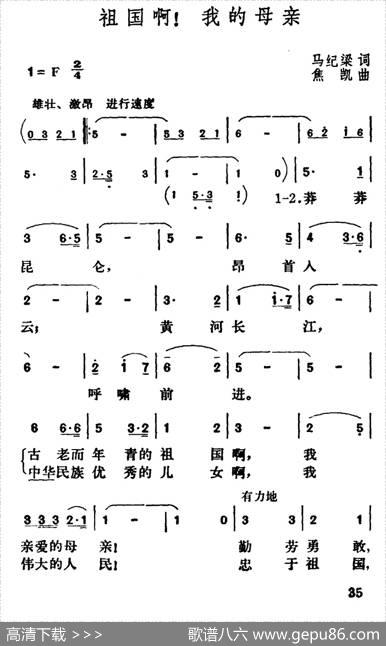 祖国啊！我的母亲
马纪梁 词
1=F 2/4
焦凯 曲
雄壮、激昂 进行速度
(0321 | 5 - | 5321 | 6 - | 62 i6
5· 3 | 2·5 3 | 1 - | 1 0) | 5· 1
(1 5·3 1) 1-2.莽莽
3 6·5 | 5 - | 5 5 | 6· 5 | 4 3·6
昆 仑， 昂首人
2 - | 2 - | 3· 2 | 1 i·7 | i -
云； 黄河长江，
i - | 6· 2 | 2 i7 | 6 2 | 5 - | 5 -
呼啸前进。
6 6·6 | 5 3·2 | 1 - | 3 - | 2 5
古 老而年 青的祖 国啊， 我
中华民族优 秀的儿 女啊， 我
有力地
3333 2·1 | 1 - | 1 0 | 3 3 | 2 1
亲爱的母 亲！ 勤劳勇敢，
伟大的人 民！ 忠于祖国，
35
高清下载 >>> 歌谱八六 www.gepu86.com